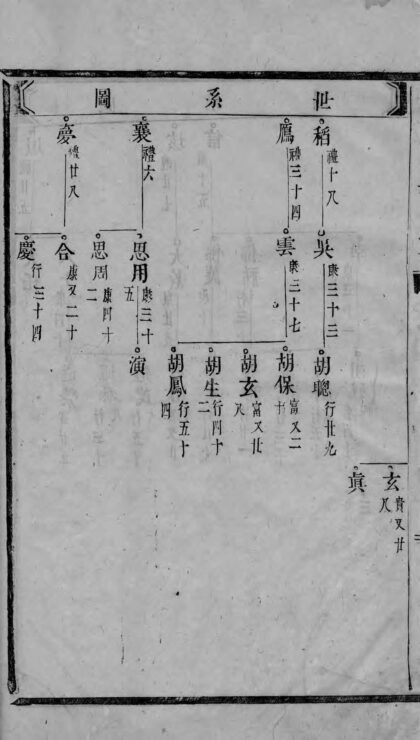 世系圖
稻 禮十八
鷹 禮三十四
襄 禮六
夢 禮廿八
吳 康三十三
雲 康三十七
思用 康三十五
思周 康四十二
合 康又二十
慶 行三十四
胡聰 行廿九
胡保 富又二十
胡玄 富又廿八
胡生 行四十二
胡鳳 行五十四
演
玄 貴又廿八
真